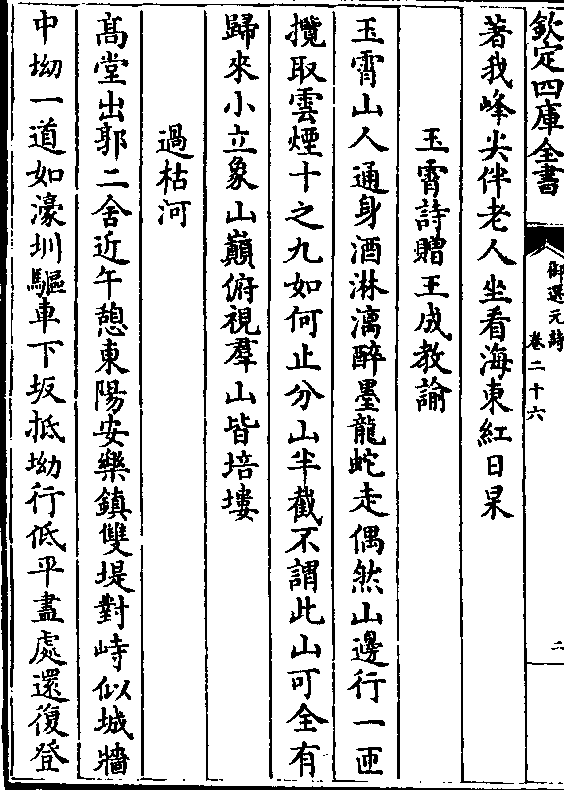 欽定四庫全書
御選元詩
卷二十六
二
著我峰尖伴老人坐看海東紅日杲
玉霄詩贈王成教諭
玉霄山人通身酒淋漓醉墨龍蛇走偶然山邊行一匝
攬取雲煙十之九如何止分山半截不謂此山可全有
歸來小立象山巔俯視羣山皆培塿
過枯河
髙堂出郭二舍近午憩東陽安樂鎮雙堤對峙似城牆
中坳一道如濠圳驅車下坂抵坳行低平盡處還復登